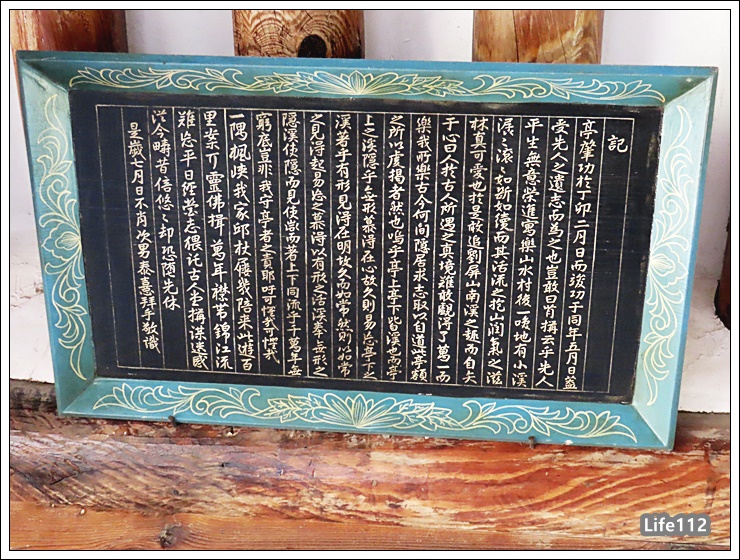 記
亭肇功於丁卯二月日而竣功于同年五月日蓋
受先人之遺志而爲之也豈敢曰肯搆云乎先人
平生無意榮進寓樂山水村後一喚地有小溪
混〻滾〻如斯如後而其活流之 山潤氣之滋
林真可愛也於是敢追劉屛山南溪之趣而自矢
于心曰人於古人所遇之真境雖敢觀得了萬一而
樂我所樂古今何間隱居求志聊以自適此亭額
之所以虔揭者然也嗚乎亭上亭下皆溪也而亭
上之溪隱乎無形慕得在心故久則易忘亭下之
溪著乎有形見得在明故久而如常然則以如常
之見得起易忘之慕得以有形之活溪奉無形之
隱溪使隱而見使微而著者上下同流乎千萬年無
窮底豈非我守亭者之責耶吁可惺哉可惺哉
一隅楓峽我家邱杖屨幾陪來此遊百
里案丌靈佛揖萬年襟帶錦江流
雖忘平日經營志猥託古人坐搆謀遠感
從今疇昔倍悠〻却恐隨先休
是歲七月日不肖次男泰熹拜手敬識
Life112